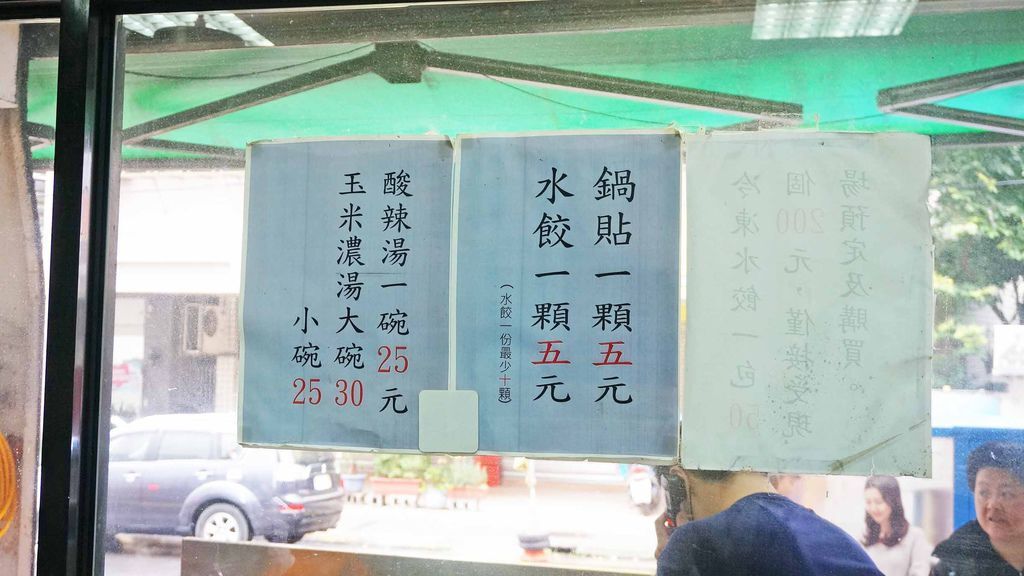 鍋貼一顆五元
水餃一顆五元
(水餃一份最少十顆)
酸辣湯一碗25元
玉米濃湯大碗30
小碗25
冷凍水餃一包50
個200元，僅接受現
場預定及購買。